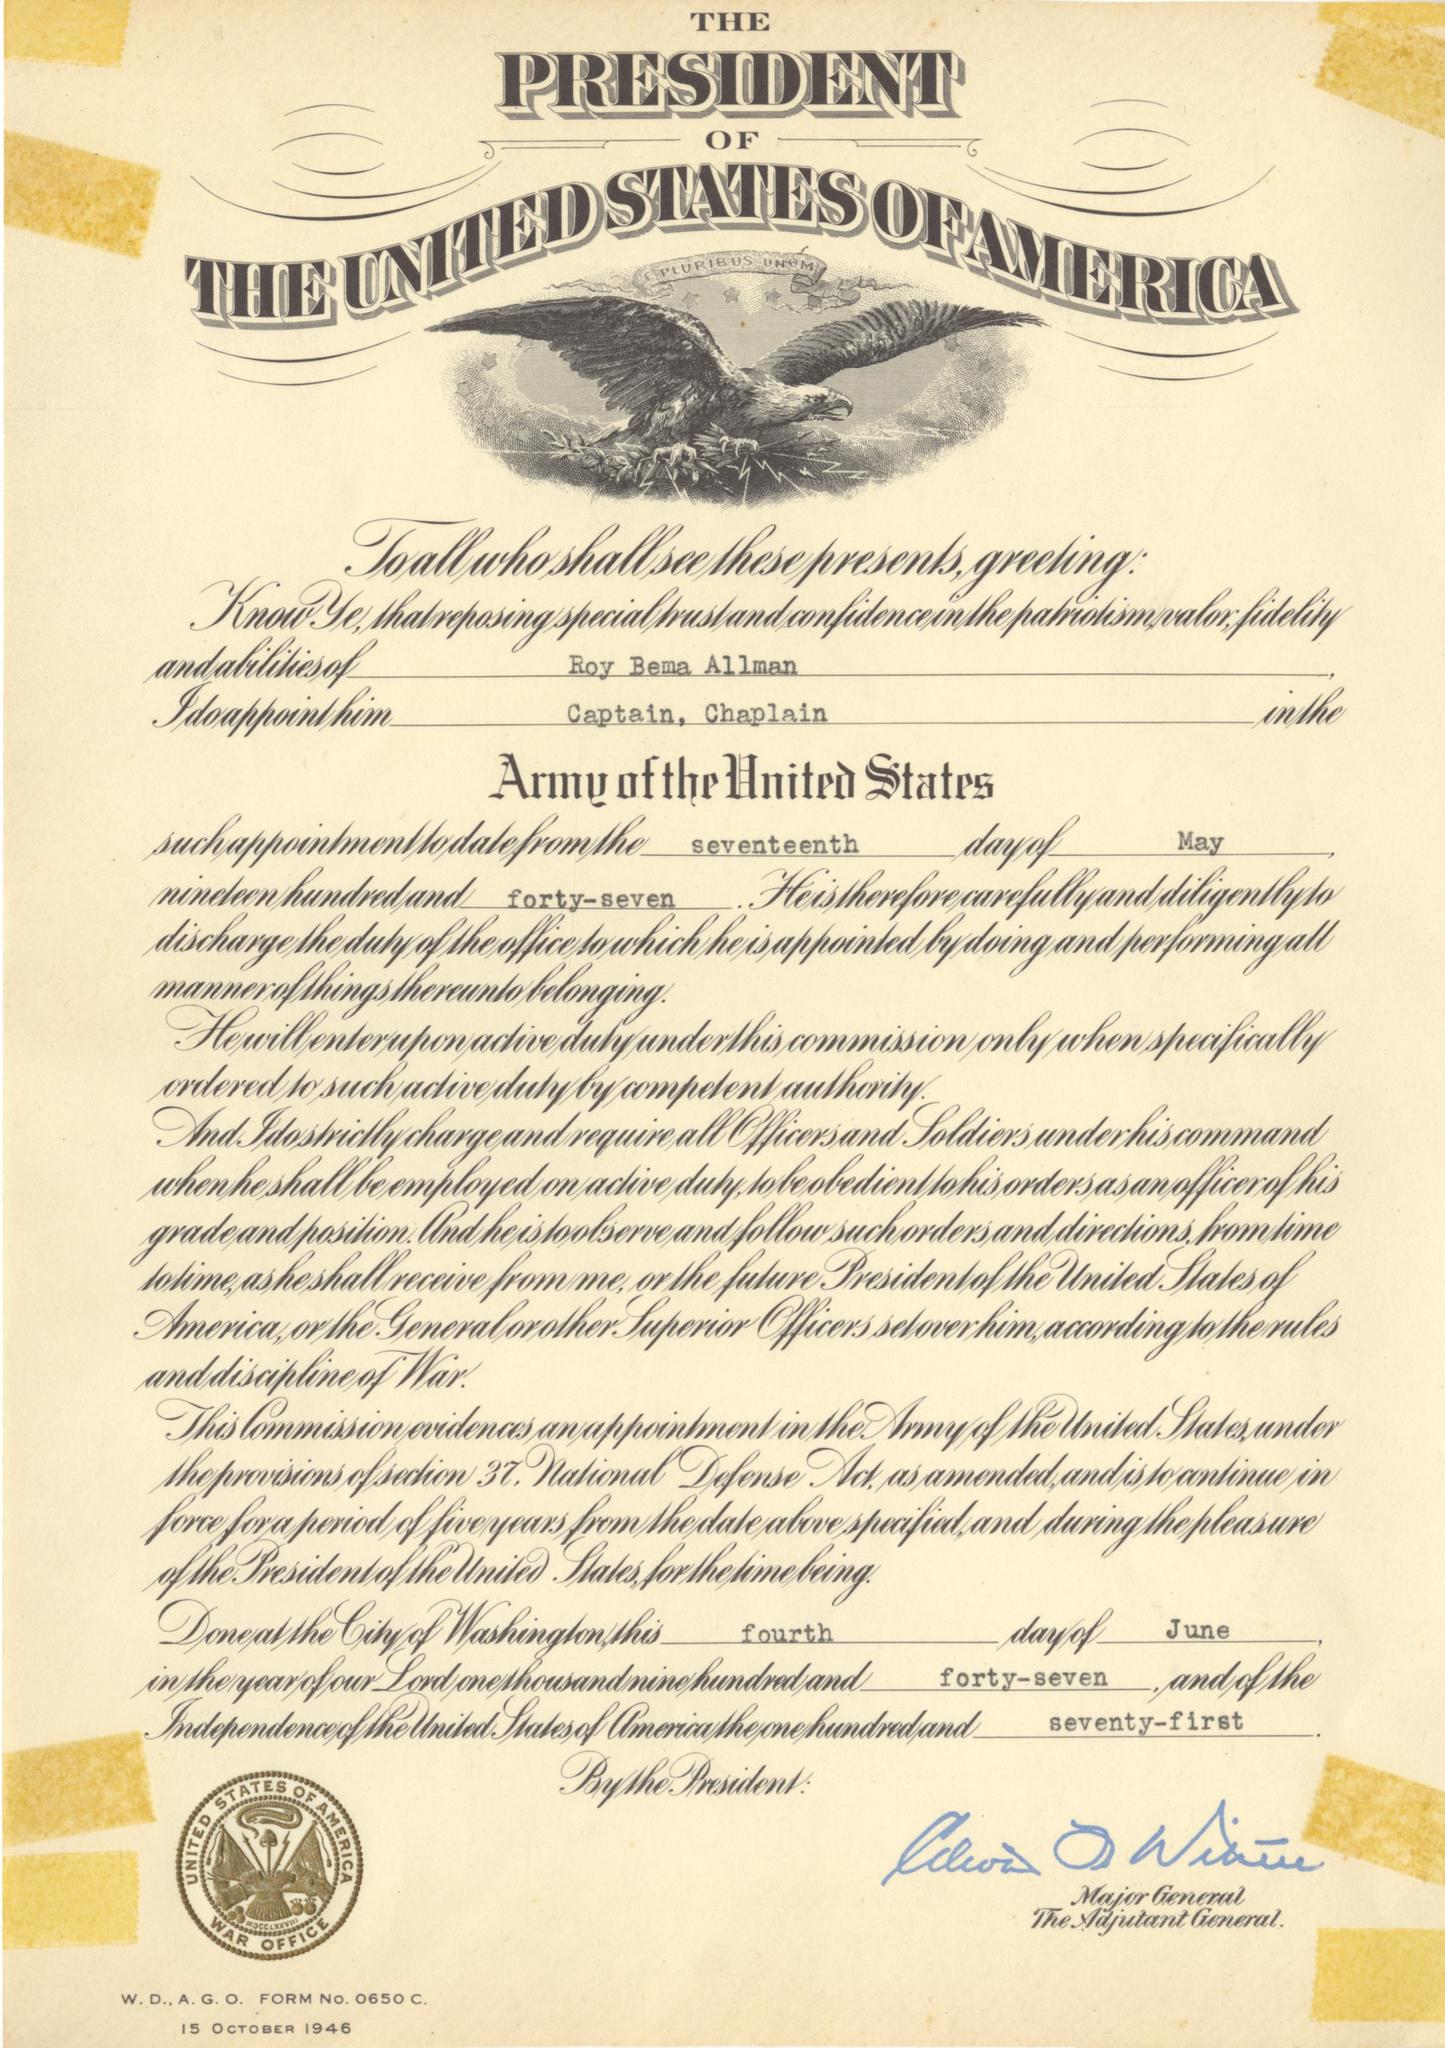 THE
PRESIDENT
OF
THE UNITED STATES OF AMERICA
E PLURIBUS UNUM
To all who shall see these presents, greeting:
Know Ye, that reposing special trust and confidence in the patriotism, valor, fidelity
and abilities of Roy Bema Allman,
I do appoint him Captain, Chaplain in the
Army of the United States
such appointment to date from the seventeenth day of May,
nineteen hundred and forty-seven. He is therefore carefully and diligently to
discharge the duty of the office to which he is appointed by doing and performing all
manner of things thereunto belonging.
He will enter upon active duty under this commission only when specifically
ordered to such active duty by competent authority.
And I do strictly charge and require all Officers and Soldiers under his command
when he shall be employed on active duty, to be obedient to his orders as an officer of his
grade and position. And he is to observe and follow such orders and directions, from time
to time, as he shall receive from me, or the future President of the United States of
America, or the General or other Superior Officers set over him, according to the rules
and discipline of War.
This Commission evidences an appointment in the Army of the United States, under
the provisions of section 37, National Defense Act, as amended, and is to continue in
force for a period of five years from the date above specified, and during the pleasure
of the President of the United States, for the time being.
Done at the City of Washington, this fourth day of June,
in the year of our Lord one thousand nine hundred and forty-seven, and of the
Independence of the United States of America the one hundred and seventy-first.
By the President:
UNITED STATES OF AMERICA
MDCCLXXVIII
WAR OFFICE
Major General
The Adjutant General.
W. D., A. G. O. FORM No. 0650 C.
15 OCTOBER 1946